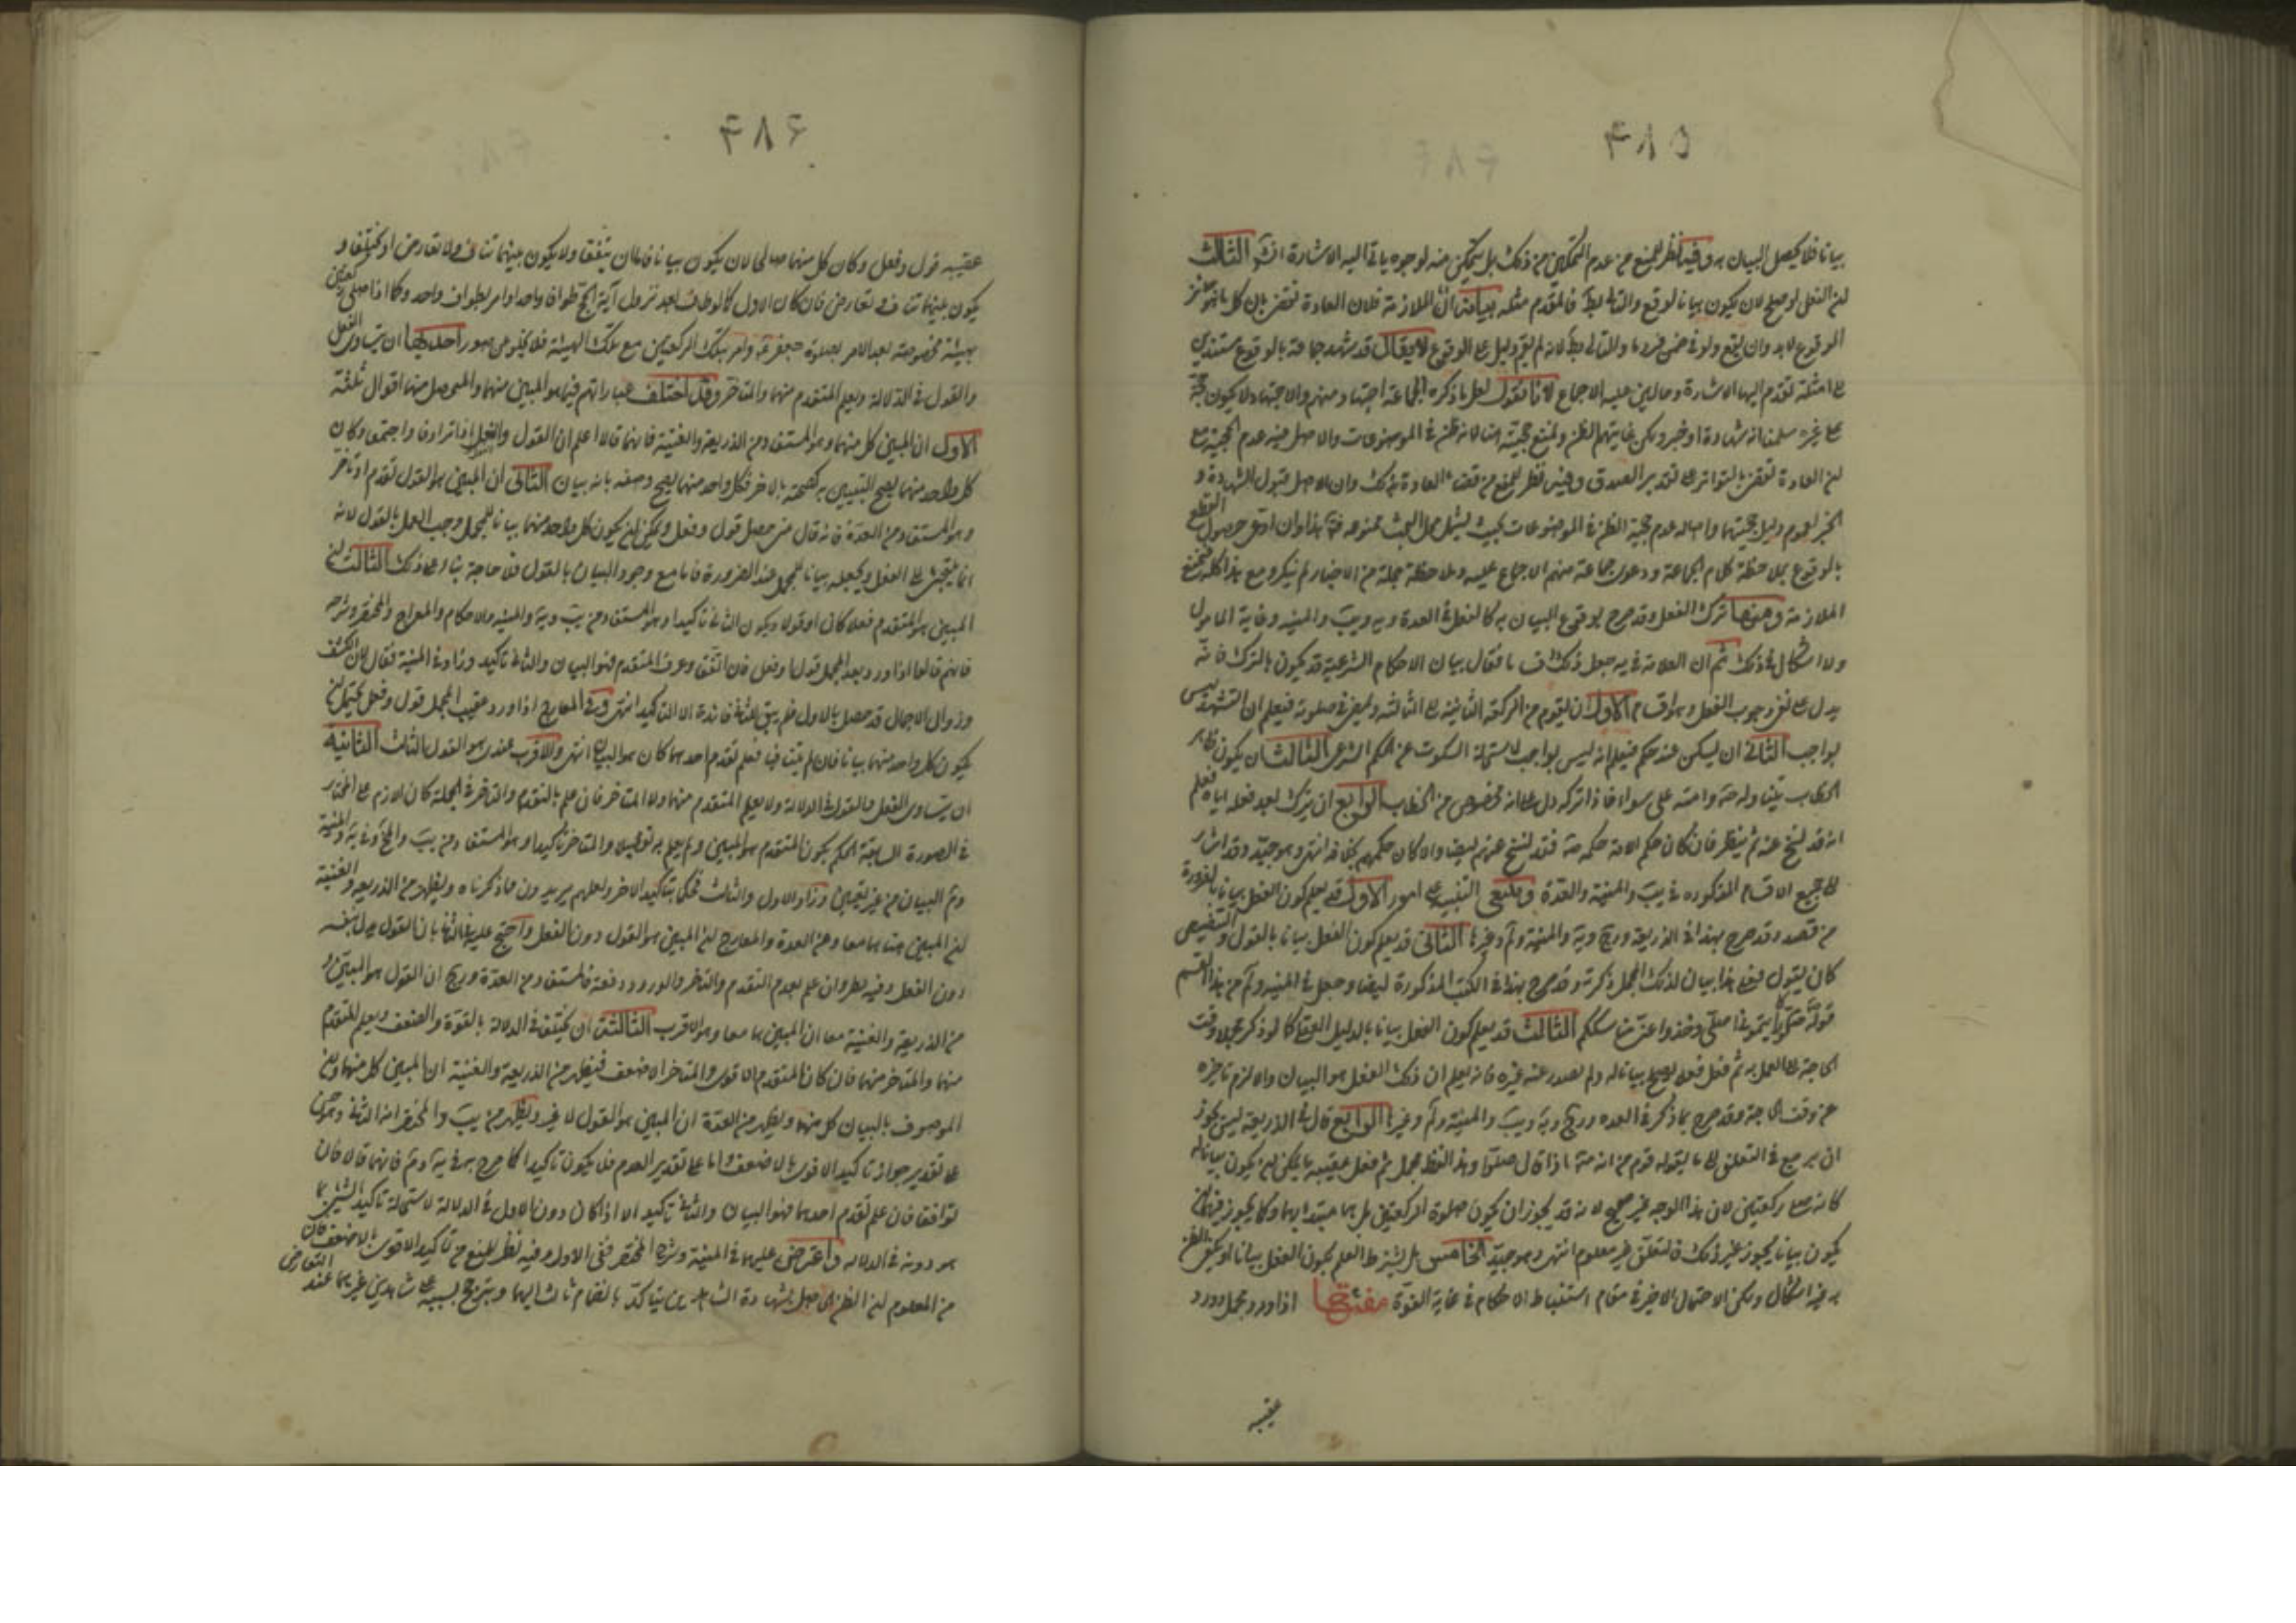 ۴۸۵
بيانا فلا يحصل البيان به وفيه نظر للمنع من عدم التمكن من ذلك بل يتمكن منه لوجوه ياتى اليه الاشارة الثالث
لان الفعل لو صلح لان يكون بيانا لوقع والتالى بط فالمقدم مثله بيان الملازمة فلان العادة تقضى بان كل ما
الوقوع لابد وان يقع ولو فى ضمن فرد ما والتالى بط لانه لم يقم دليل على الوقوع لا يقال قد شهد جماعة بالوقوع مستندين
على امثلة تقدم اليها الاشارة الاجماع لانا نقول لعل ما ذكره الجماعة اجتهاد منهم والاجتهاد لا يكون حجة
على غيره سلمنا انه شهادة او خبر ولكن غايتهما الظن ونمنع حجيته هنا لانه ظن فى الموضوعات والاصل فيه عدم الحجية مع
لان العادة تقضى بالتواتر على تقدير الصدق وفيه نظر للمنع من قضاء العادة بذلك وان الاصل قبول الشهادة و
الخبر لعموم دليل حجيتهما واصالة عدم حجية الظن فى الموضوعات بحيث يشمل محل البحث ممنوعة هذا وان ادعى حصول القطع
بالوقوع بملاحظة كلام الجماعة ودعوى جماعة منهم الاجماع عليه وملاحظة جملة من الاخبار لم ينكر ومع هذا كله فنمنع
الملازمة ومنها ترك الفعل وقد صرح بوقوع البيان به كالفعل فى العدة ويه ويب والمنيه وغاية المامول
ولا اشكال فى ذلك ثم ان العلامة فى يه جعل ذلك فقال بيان الاحكام الشرعية قد يكون بالترك فانه
يدل على نفى وجوب الفعل وهو اقسام الاول ان يقوم من الركعة الثانية الى الثالثة ويمضى فى صلوته فيعلم ان التشهد ليس
بواجب الثانى ان يسكت عند حكم فيعلم انه ليس بواجب لاستحالة السكوت عن الحكم الشرعى الثالث ان يكون ظاهر
الخطاب يتناوله وامته على سواء فاذا تركه دل على انه مخصوص من الخطاب الرابع ان يترك بعد فعله اياه فيعلم
انه قد نسخ عنه ثم ينظر فان كان حكم الامة حكمه فقد نسخ عنهم ايضا والا كان حكمهم بخلافه انتهى وهو جيد وقد اشار
الى جميع الاقسام المذكوره فى يب والمنية والعدة وينبغى التنبيه على امور الاول قد يعلم كون الفعل بيانا بالضرورة
من قصده وقد صرح بهذا فى الذريعة ويه والمنية وغيرها الثانى قد يعلم كون الفعل بيانا بالقول والتنصيص
كان يقول هذا بيان لذلك المجمل وقد صرح بهذا فى الكتب المذكورة ايضا وجعل فى المنيه من هذا القسم
قوله صلوا كما رايتمونى اصلى وخذوا عنى مناسككم الثالث قد يعلم كون الفعل بيانا بالدليل العقلى كما لو ذكر مجملا وقت
الحاجة الى العمل به ثم فعل فعلا يصلح بيانا له ولم يصدر عنه غيره فانه يعلم ان ذلك الفعل هو البيان والا لزم تاخيره
عن وقت الحاجة وقد صرح بما ذكر فى العده ويه ويب والمنية وغيرها الرابع قال فى الذريعة ليس يجوز
ان يرجع فى التعلق الى ما يقوله قوم من انه اذا قال صلوا وهذا اللفظ مجمل ثم فعل عقيبه ما يمكن ان يكون بيانا له
كانه صلى ركعتين لان هذا الوجه غير صحيح لانه قد يجوز ان يكون صلوة الركعتين بل بما مبتدا بهما وكما يجوز فيهما ان
يكون بيانا يجوز غير ذلك فالتعلق غير معلوم انتهى وهو جيد الخامس هل يشترط العلم بكون الفعل بيانا او يكفى الظن
به فيه اشكال ولكن الاحتمال الاخير فى مقام استنباط الاحكام فى غاية القوة مفتاح اذا ورد مجمل وورد
عقيبه
۴۸۶
عقيبه قول وفعل وكان كل منهما صالحا لان يكون بيانا فاما ان يتفقا ولا يكون بينهما تناف ولا تعارض او يختلفا و
يكون بينهما تناف وتعارض فان كان الاول كما لو طاف بعد نزول آية الحج طوافا واحدا وامر بطواف واحد وكما اذا صلى ركعتين
بهيئة مخصوصة بعد الامر بصلوة وامر بتلك الركعتين مع تلك الهيئة فلا يخلو من صور احديها ان يتساوى الفعل
والقول فى الدلالة ويعلم المتقدم منهما والمتاخر وقد اختلف عباراتهم فيما هو المبين منهما والمحصل منها اقوال ثلثة
الاول ان المبين كل منهما وهو المستفاد من الذريعة والغنية فانهما قالا اعلم ان القول والفعل اذا ترادفا واجتمعا وكان
كل واحد منهما يصح التبيين به كصحته بالاخر فكل واحد منهما يصح وصفه بانه بيان الثانى ان المبين هو القول تقدم او تاخر
وهو المستفاد من العدة فانه قال متى حصل قول وفعل ويمكن ان يكون كل واحد منهما بيانا للمجمل وجب العمل بالقول لانه
انما يلتجئ الى الفعل ويجعله بيانا للمجمل عند الضرورة فاما مع وجود البيان بالقول فلا حاجة بنا الى ذلك الثالث ان
المبين هو المتقدم فعلا كان او قولا ويكون الثانى تاكيدا وهو المستفاد من يب ويه والمنيه والاحكام والمعراج والمختصر وشرحه
فانهم قالوا اذا ورد بعد المجمل قول وفعل فان اتفقا وعرف المتقدم فهو البيان والثانى تاكيد وزاد فى المنية فقال لان الكشف
وزوال الاجمال قد حصل بالاول فلم يبق للثانى فائدة الا التاكيد انتهى وفى المعارج اذا ورد عقيب المجمل قول وفعل يحتمل ان
يكون كل واحد منهما بيانا فان لم يتنافيا فعلم تقدم احدهما كان هو البيان انتهى والاقرب عندى هو القول الثالث الثانية
ان يتساوى الفعل والقول فى الدلالة ولا يعلم المتقدم منهما ولا المتاخر فان علم بالتقدم والتاخر فى الجملة كان اللازم على المختار
فى الصورة السابقة الحكم بكون المتقدم هو المبين ولم يعلم به تفصيلا والمتاخر تاكيدا وهو المستفاد من يب والمنية
البيان من غير تعيين وزاد الاول والثالث فحكما بتاكيد الاخر ولعلهم يريدون ما ذكرناه ويظهر من الذريعه والغنية
ان المبين هنا هما معا وعن العدة والمعارج ان المبين هو القول دون الفعل واحتج عليه بان القول يدل بنفسه
دون الفعل وفيه نظر وان علم بعدم التقدم والتاخر والورود دفعة فالمستفاد من العدة ويج ان القول هو المبين و
من الذريعة والغنية معا ان المبين هما معا وهو الاقرب الثالثة ان يختلفا فى الدلالة بالقوة والضعف ويعلم المتقدم
منهما والمتاخر منهما فان كان المتقدم الاقوى والمتاخر الاضعف فيظهر من الذريعه والغنية ان المبين كل منهما وان
الموصوف بالبيان كل منهما ويظهر من العدة ان المبين هو القول لا غير ويظهر من يب والمختصر انه الثانى وهو حسن
على تقدير جواز تاكيد الاقوى بالاضعف واما على تقدير العدم فلا يكون تاكيدا كما صرح به فى يه فانهما قالا فان
توافقا فان علم تقدم احدهما فهو البيان والثانى تاكيد الا اذا كان دون الاول فى الدلالة لاستحالة تاكيد الشئ بما
هو دونه فى الدلاله واعترض عليهما فى المنية وشرح المختصر ففى الاول وفيه نظر للمنع من تاكيد الاقوى بالاضعف فان
من المعلوم ان الظن الحاصل بشهادة الشاهدين يتاكد بانضمام ثالث اليهما ويترجح بسببه على شاهدين غيرهما عند التعارض